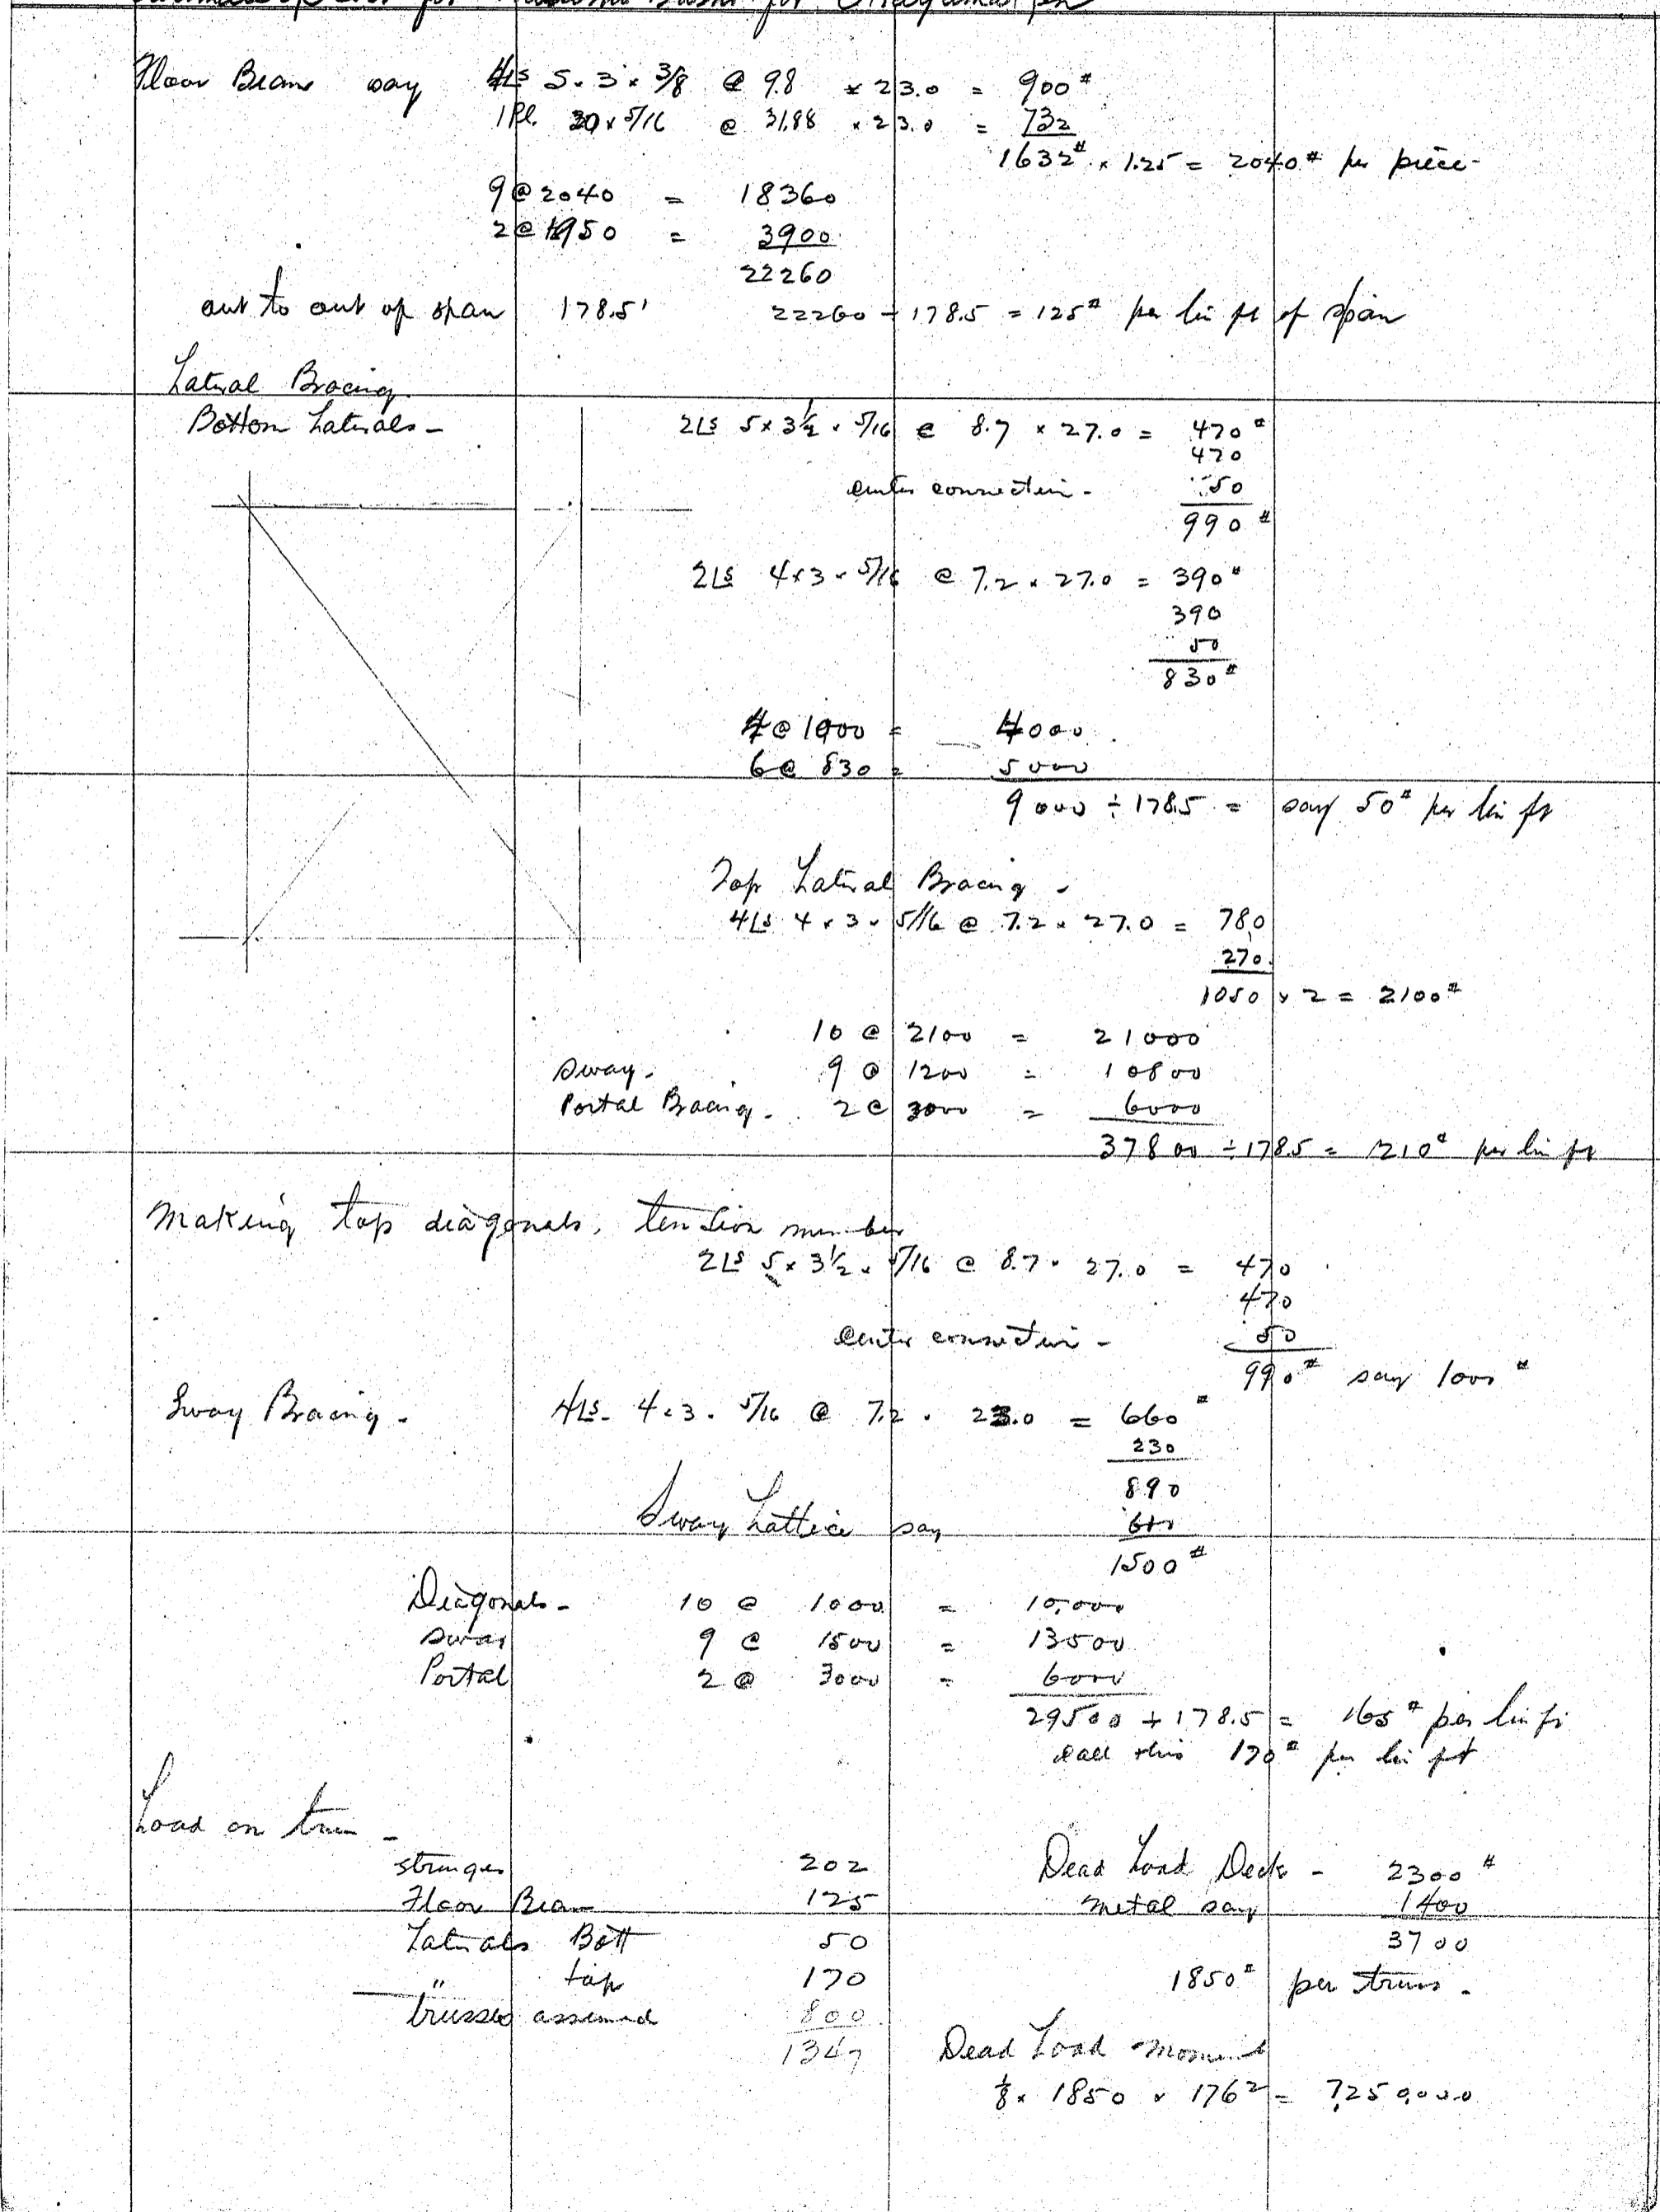 for
Floor Beams say 4Ls 5 x 3 x 3/8 @ 9.8 x 23.0 = 900#
1 Pl. 30 x 5/16 @ 31.88 x 23.0 = 732
1632# x 1.25 = 2040# per piece -
9 @ 2040 = 18360
2 @ 1950 = 3900
22260
out to out of span 178.5' 22260 ÷ 178.5 = 125# per lin ft of span
Lateral Bracing
Bottom Laterals - 2Ls 5 x 3½ x 5/16 @ 8.7 x 27.0 = 470#
470
center connection - 50
990#
2Ls 4 x 3 x 5/16 @ 7.2 x 27.0 = 390#
390
50
830#
4 @ 1000 = 4000
6 @ 830 = 5000
9000 ÷ 178.5 = say 50# per lin ft
Top Lateral Bracing -
4Ls 4 x 3 x 5/16 @ 7.2 x 27.0 = 780
270
1050 x 2 = 2100#
10 @ 2100 = 21000
Sway - 9 @ 1200 = 10800
Portal Bracing - 2 @ 3000 = 6000
37800 ÷ 178.5 = 210# per lin ft
Making top diagonals, tension member
2Ls 5 x 3½ x 5/16 @ 8.7 x 27.0 = 470
470
center connection - 50
990# say 1000#
Sway Bracing - 4Ls 4 x 3 x 5/16 @ 7.2 x 23.0 = 660#
230
890
Sway Lattice say 610
1500#
Diagonals - 10 @ 1000 = 10,000
Sway 9 @ 1500 = 13500
Portal 2 @ 3000 = 6000
29500 ÷ 178.5 = 165# per lin ft
call this 170# per lin ft
Load on truss -
stringers 202
Floor Beam 125
Laterals Bott 50
" top 170
trusses assumed 800
1347
Dead Load Deck - 2300#
metal say 1400
3700
1850# per truss -
Dead Load Moment
⅛ x 1850 x 176² = 7,250,000